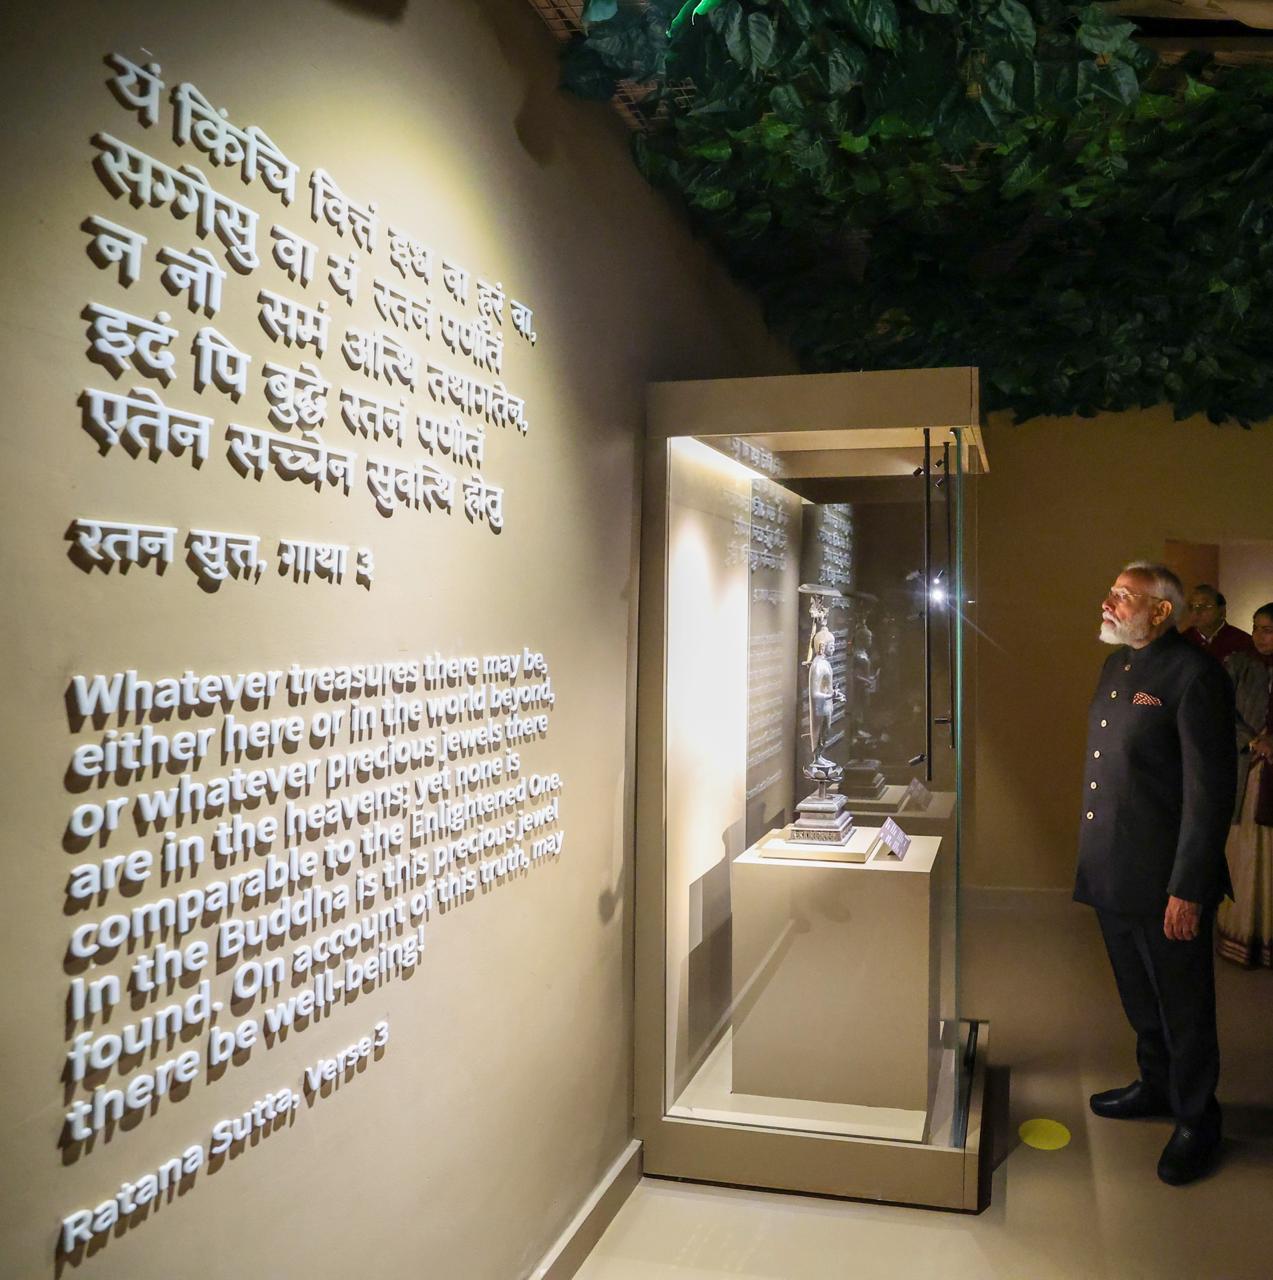 यं किंचि वित्तं इध वा हुरं वा,
सग्गेसु वा यं रतनं पणीतं
न नो समं अत्थि तथागतेन,
इदं पि बुद्धे रतनं पणीतं
एतेन सच्चेन सुवत्थि होतु
रतन सुत्त, गाथा ३
Whatever treasures there may be,
either here or in the world beyond,
or whatever precious jewels there
are in the heavens; yet none is
comparable to the Enlightened One.
In the Buddha is this precious jewel
found. On account of this truth, may
there be well-being!
Ratana Sutta, Verse 3